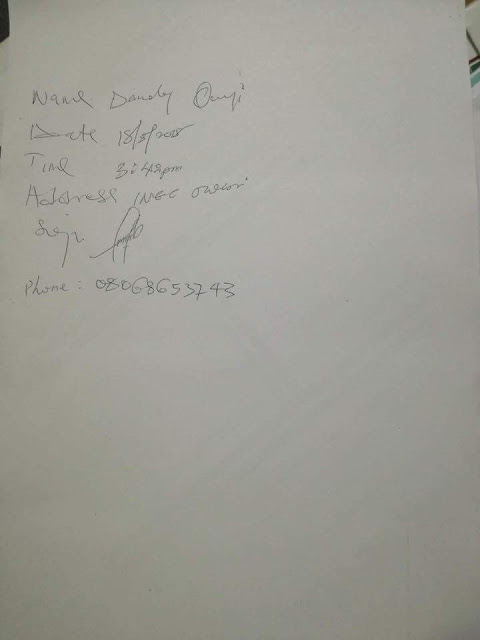 Name Dandy
Date 18/8/2025
Time 3:42pm
Address INEC Owerri
Sign
Phone: 08068653743